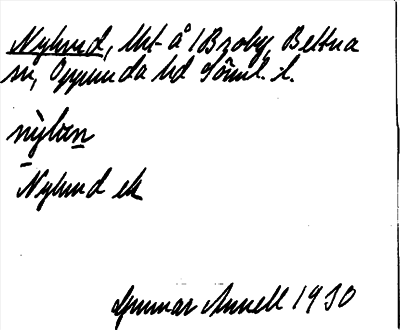 Nylund, lht å 1 Broby, Bettna
sn, Oppunda hd Söml. l.
nỳlan
Nylund ek
Gunnar Annell 1930